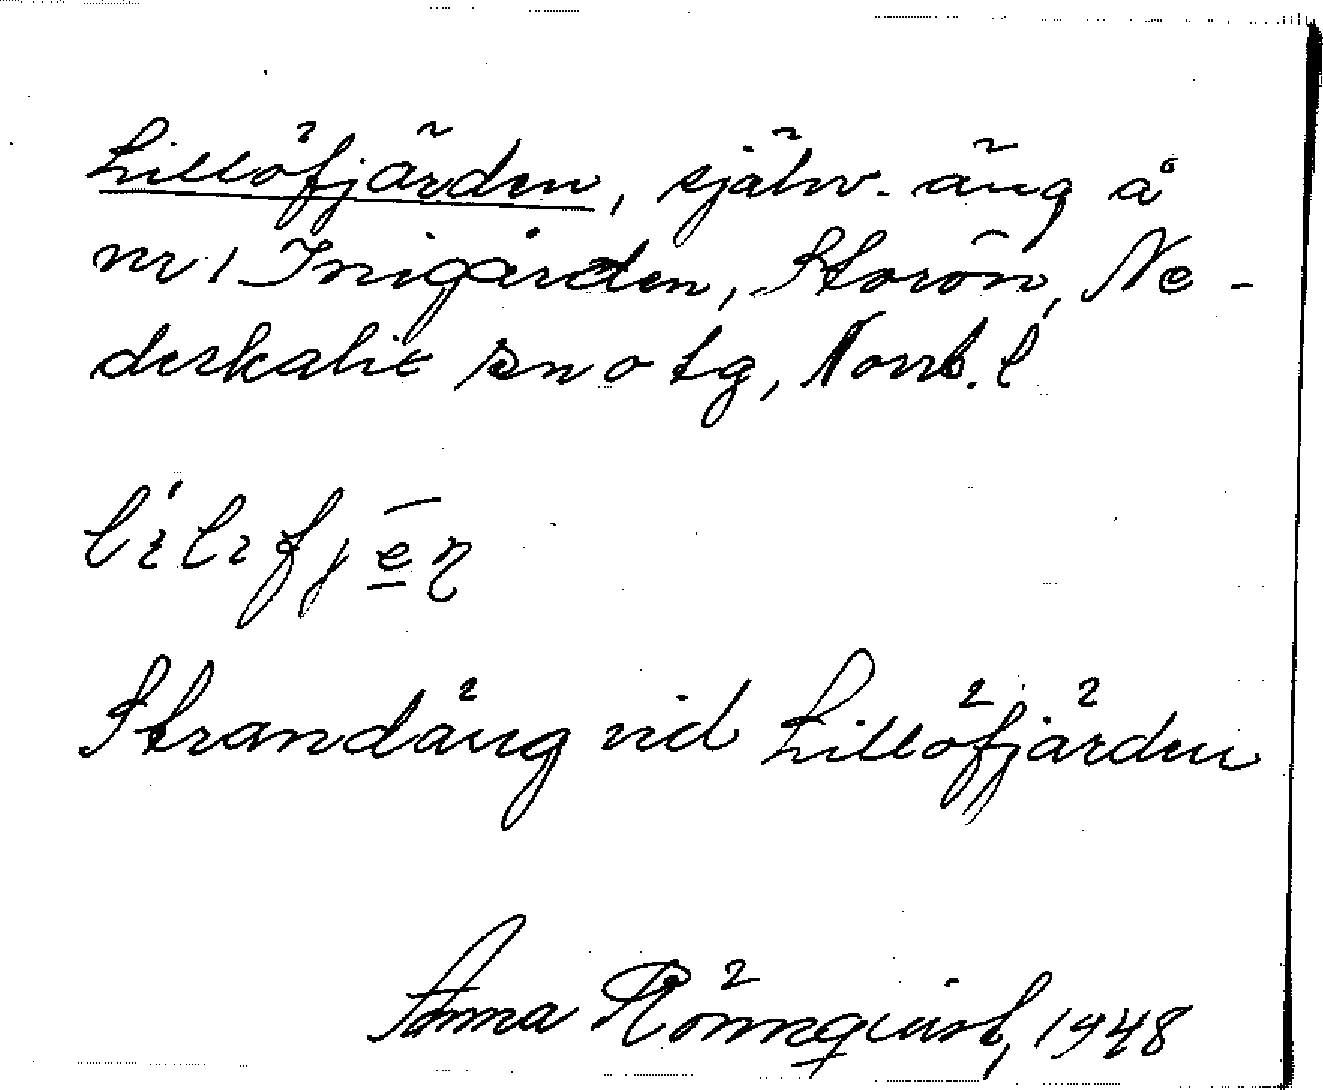 Lillöfjärden, självr. äng å
nr 1 Inigården, Storön, Ne-
derkalix sn o tg, Norrb. l
Strandäng vid Lillöfjärden
Anna Rönnqvist, 1948